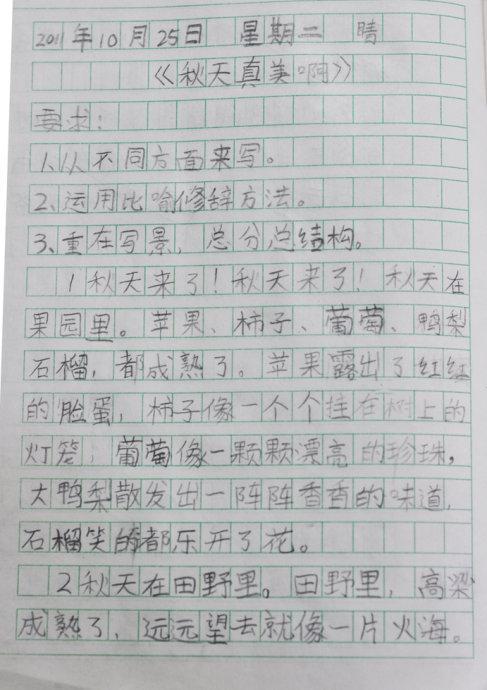 2011年10月25日 星期二 晴
《秋天真美啊》
要求：
1、从不同方面来写。
2、运用比喻修辞方法。
3、重在写景，总分总结构。
1秋天来了！秋天来了！秋天在
果园里。苹果、柿子、葡萄、鸭梨
石榴，都成熟了。苹果露出了红红
的脸蛋，柿子像一个个挂在树上的
灯笼，葡萄像一颗颗漂亮的珍珠，
大鸭梨散发出一阵阵香香的味道，
石榴笑的都乐开了花。
2秋天在田野里。田野里，高粱
成熟了，远远望去就像一片火海。